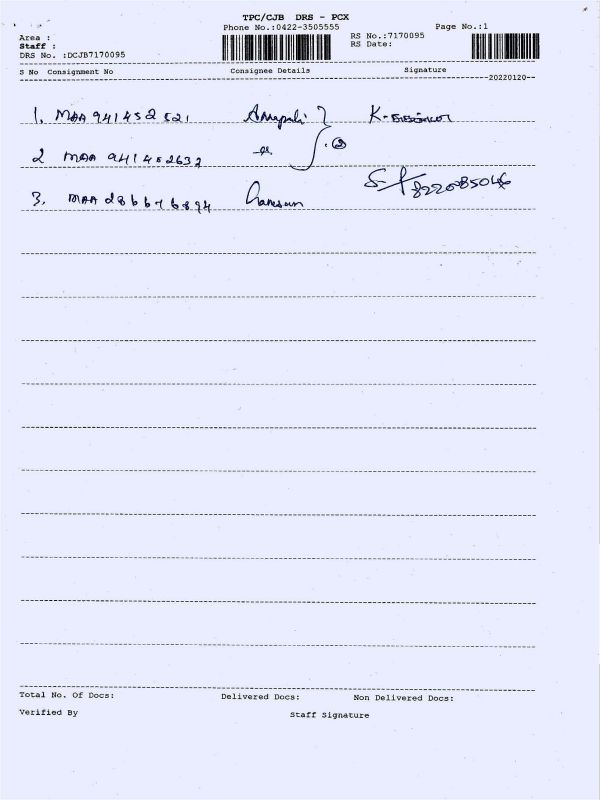 TPC/CJB DRS - PCX
Phone No.:0422-3505555 Page No.:1
Area : RS No.:7170095
Staff : RS Date:
DRS No. :DCJB7170095
S No Consignment No Consignee Details Signature
20220120
1. MAA 941452521
2 MAA 941452632
3. MAA 286676894
8220085046
Total No. Of Docs: Delivered Docs: Non Delivered Docs:
Verified By Staff Signature